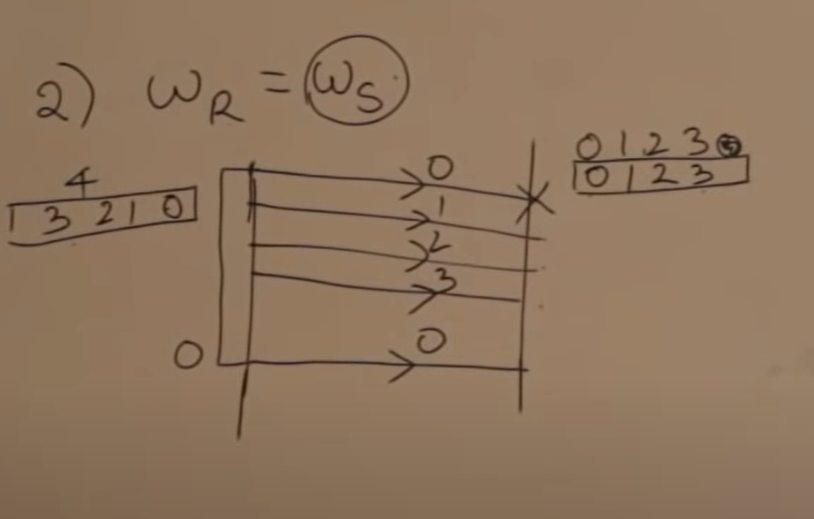 2) ω_R = ω_S
4
3 2 1 0
0
1
2
3
0
0
0 1 2 3
0 1 2 3